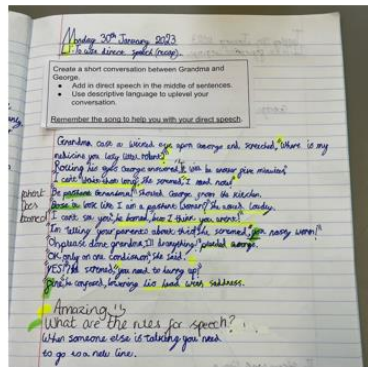 Monday 30th January 2023
To use direct speech (recap).
Create a short conversation between Grandma and
George.
Add in direct speech in the middle of sentences.
Use descriptive language to uplevel your
conversation.
Remember the song to help you with your direct speech.
Grandma cast a wicked eye upon George and screeched, "Where is my
medicine you lazy little
his eyes George answered, it will be another five minutes"
I can't wait that long she screamed, I need now!
Be Grandma!" shouted George from the kitchen.
look like I am a women? She loudly.
I can't see you, he I think you aren't!"
Im telling your parents about this! she screamed, you nasty worm!"
Oh please dont grandma, I'll do anything!" pleaded George.
Ok only on one condision" she said.
YES? He you need to hurry up!"
he confused, lowering his head with saddness.
Amazing
What are the rules for speech?
When someone else is talking you need
to go to a new line.